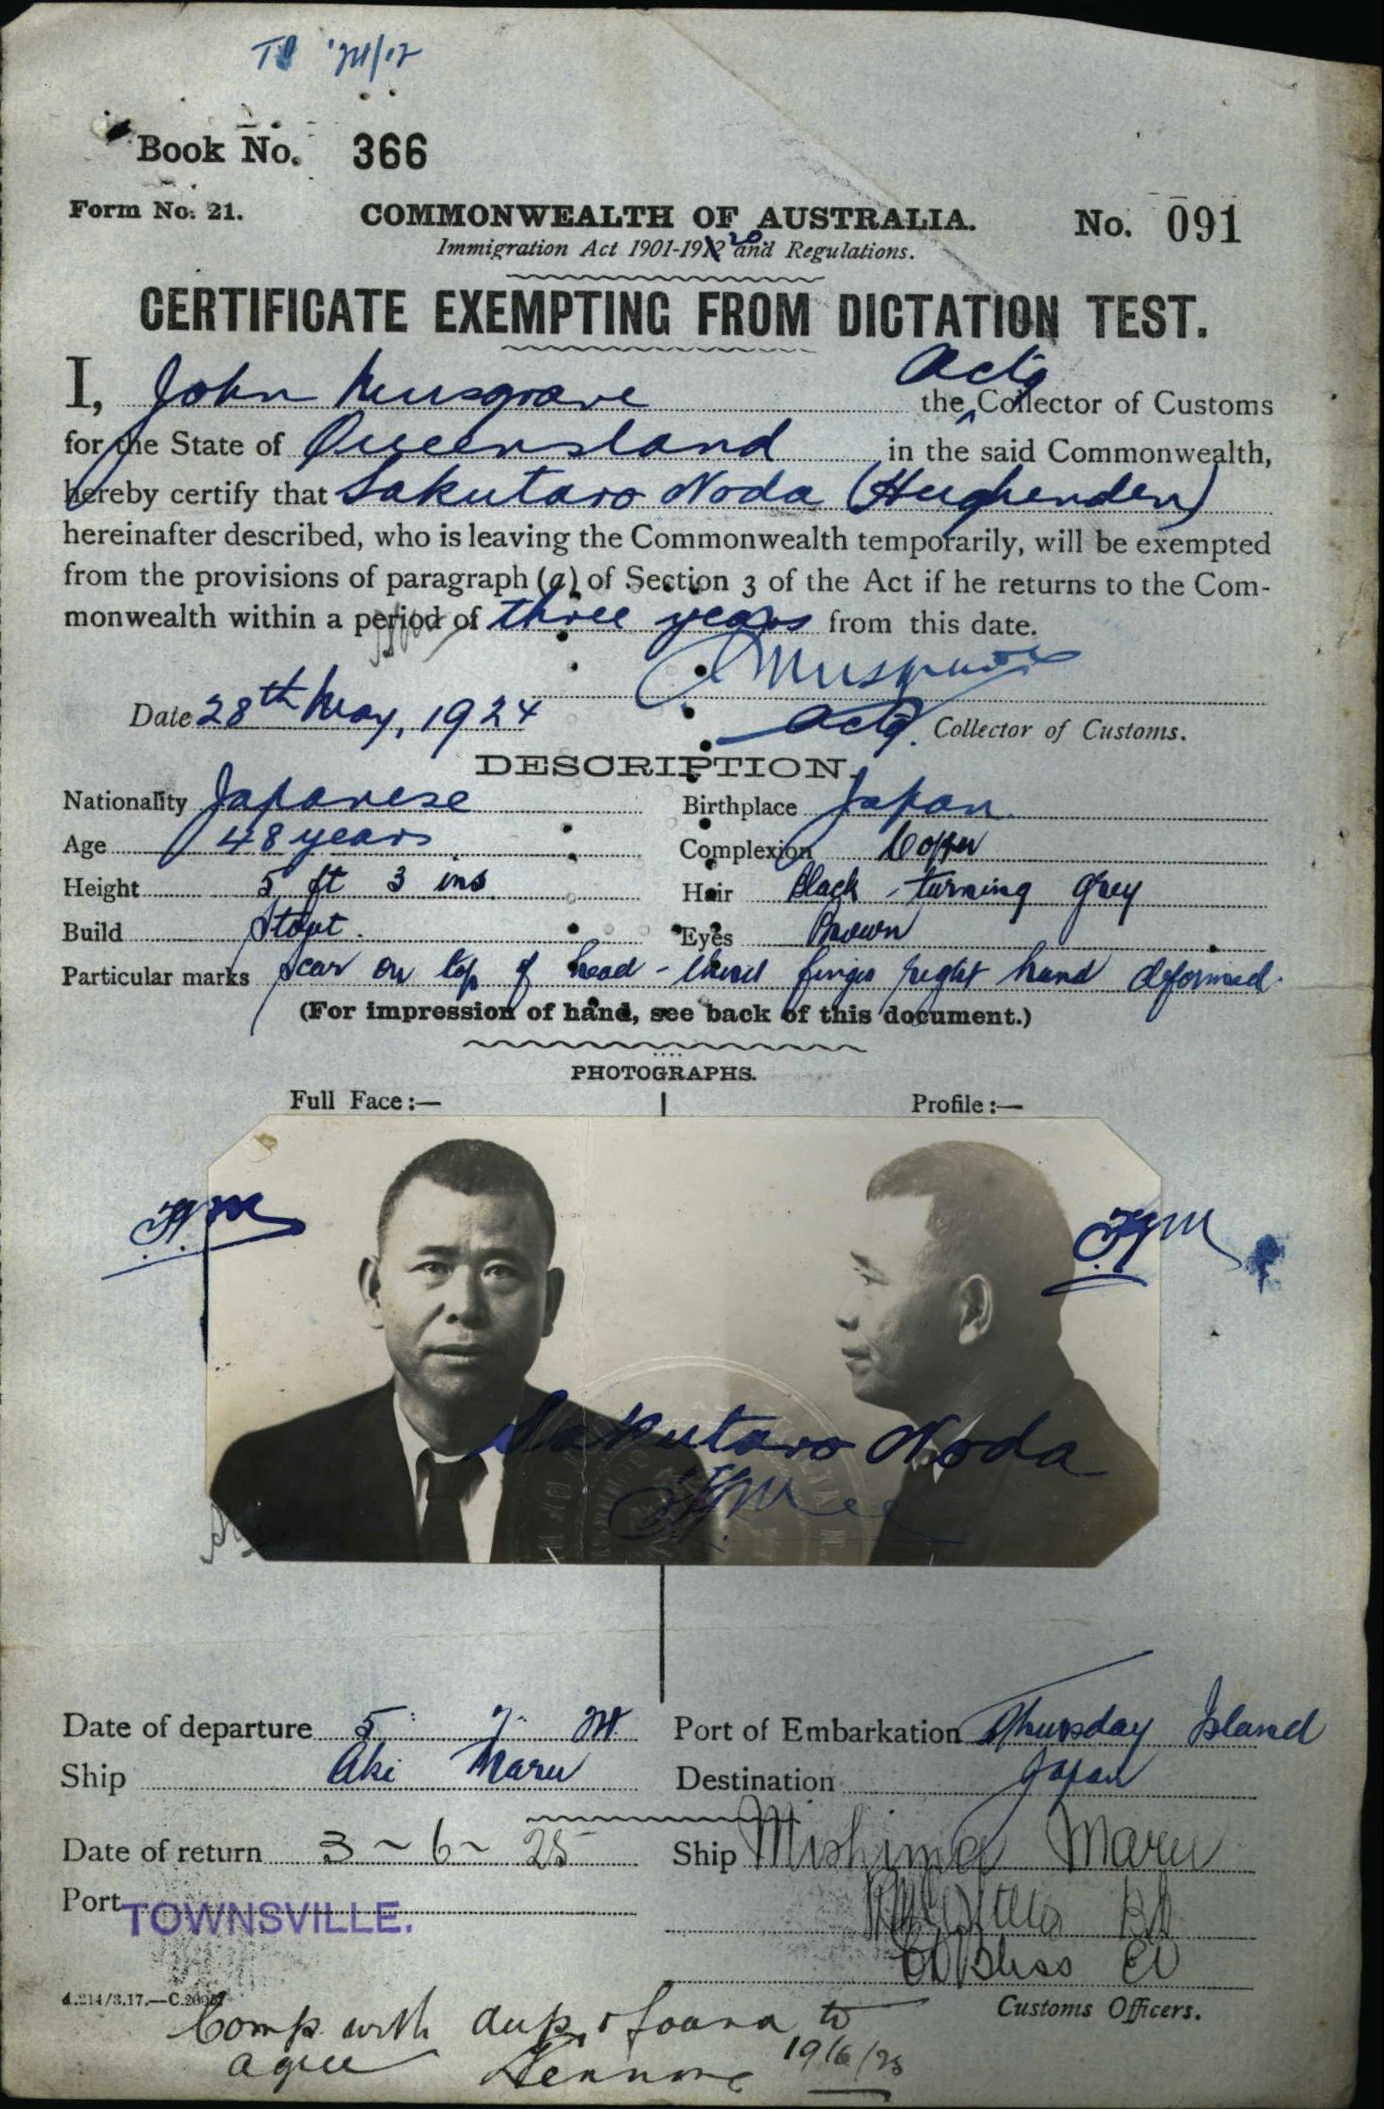 Book No. 366
Form No. 21. COMMONWEALTH OF AUSTRALIA. No. 091
Immigration Act 1901-1912 20 and Regulations.
CERTIFICATE EXEMPTING FROM DICTATION TEST.
I, John Musgrave Actg the Collector of Customs
for the State of Queensland in the said Commonwealth,
hereby certify that Sakutaro Noda (Hughenden)
hereinafter described, who is leaving the Commonwealth temporarily, will be exempted
from the provisions of paragraph (a) of Section 3 of the Act if he returns to the Com-
monwealth within a period of three years from this date.
Musgrave
Date 28th May, 1924 Actg. Collector of Customs.
DESCRIPTION.
Nationality Japanese Birthplace Japan.
Age 48 years Complexion Copper
Height 5 ft 3 ins. Hair Black - turning grey
Build Stout. Eyes Brown
Particular marks Scar on top of head - third finger right hand deformed.
(For impression of hand, see back of this document.)
PHOTOGRAPHS.
Full Face :— Profile :—
Sakutaro Noda
Date of departure 5. 7. 24. Port of Embarkation Thursday Island
Ship Aki Maru Destination Japan
Date of return 3 ~ 6 ~ 25 Ship Mishima Maru
Port TOWNSVILLE.
Bliss
Customs Officers.
Comp. with dup. & found to
agree 19/6/25